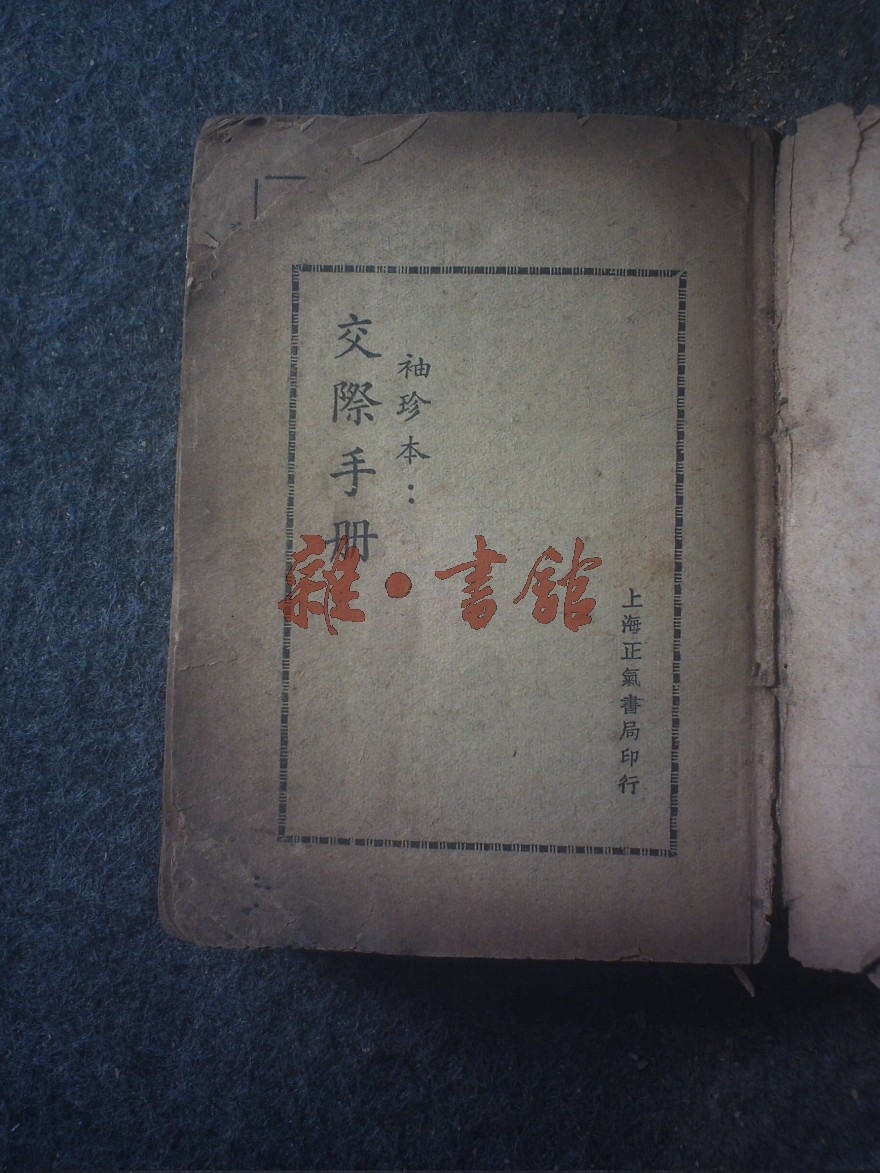 袖珍本：
交際手册
上海正氣書局印行
雜·書館